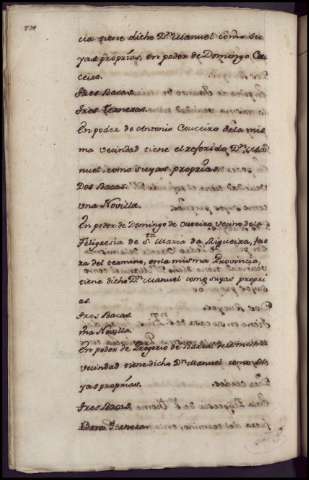 cia tiene dicho Dn. Manuel como su
yas proprias, en poder de Domingo Co
ceiro.
Tres Bacas.
Tres Terneras.
En poder de Antonio Couceiro de la mis
ma vecindad tiene el referido Dn. Ma
nuel como suyas proprias
Dos Bacas.
Una Novilla.
En poder de Domingo de Outeiro vecino de la
Feligresia de Sta. Maria da Rigueira, fue
ra del termino, en la misma Provincia,
tiene dicho Dn. Manuel como suyas propri
as.
Tres Bacas
Una Novilla
En poder de de la misma
vecindad tiene dicho Dn. Manuel como su
yas proprias.
Tres Bacas.